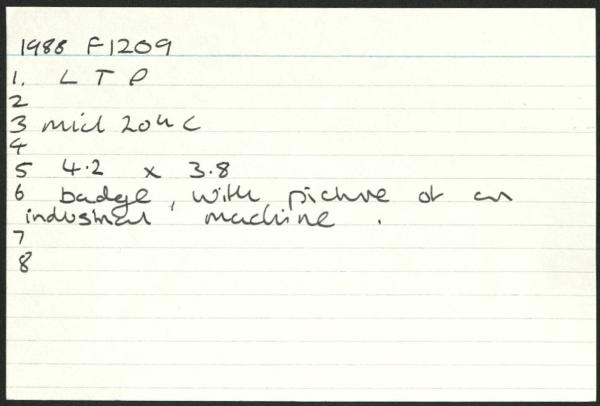 1988 F1209
1. L T P
2
3 mid 20th C
4
5 4.2 x 3.8
6 badge, with picture of an
industrial machine.
7
8